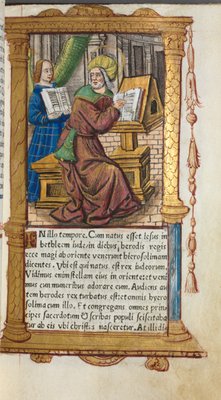 IN illo tempore. Cum natus esset Iesus in
bethleem iude in diebus, herodis regis
ecce magi ab oriente venerunt hierosolimam
dicentes. Ubi est qui natus est rex iudeorum.
Vidimus enim stellam eius in oriente: et venimus
cum muneribus adorare eum. Audiens au
tem herodes rex turbatus est: et omnis hyero
solima cum illo. Et congregans omnes prin
cipes sacerdotum & scribas populi sciscitaba
tur ab eis ubi christus nasceretur. At illi di